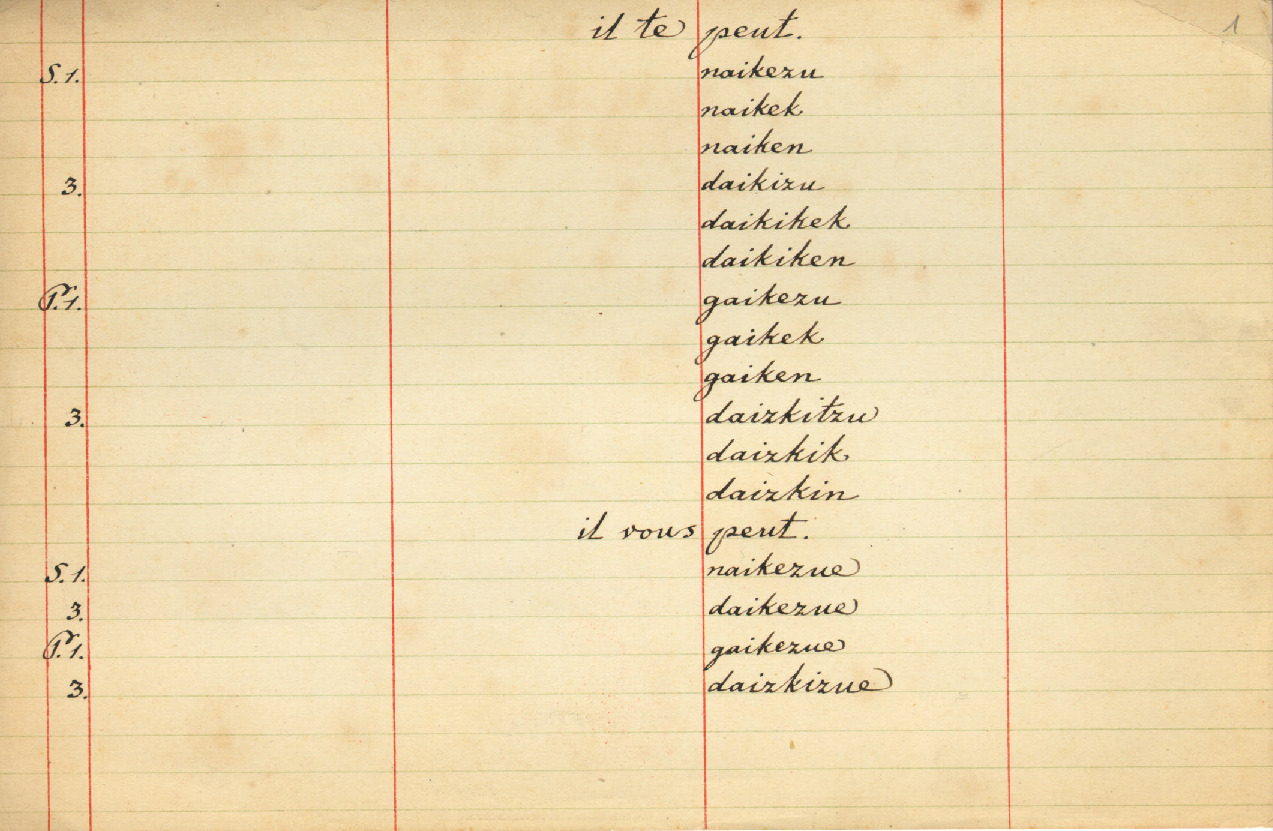 1
il te peut.
S. 1. naikezu
naikek
naiken
3. daikizu
daikikek
daikiken
Pr. 1. gaikezu
gaikek
gaiken
3. daizkitzu
daizkik
daizkin
il vous peut.
S. 1. naikezue
3. daikezue
Pr. 1. gaikezue
3. daizkizue